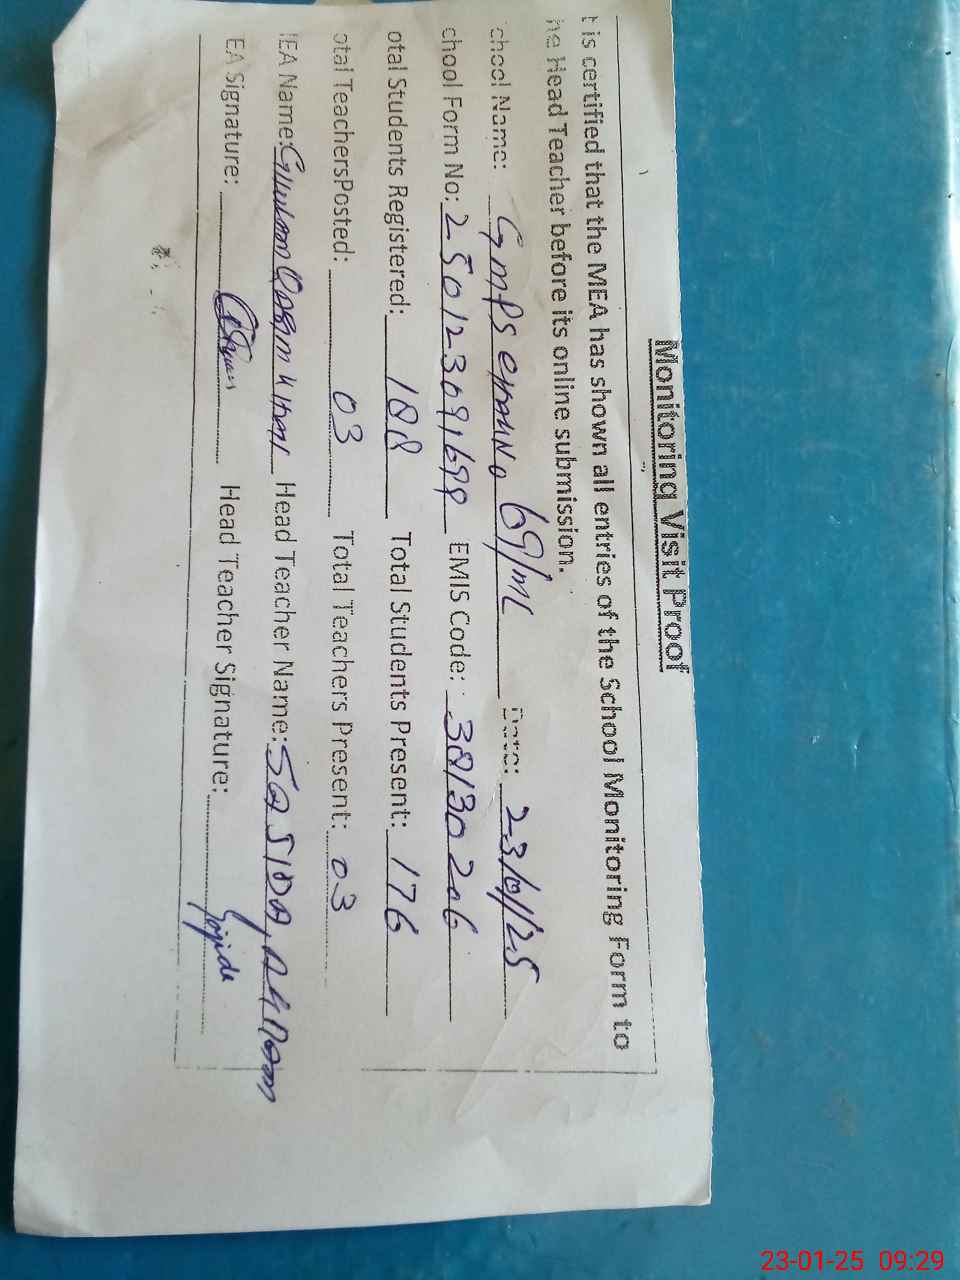 Monitoring Visit Proof
t is certified that the MEA has shown all entries of the School Monitoring Form to
he Head Teacher before its online submission.
chool Name: GMPS CHAK No 69/ML Date: 23/01/25
chool Form No: 2501230916 EMIS Code: 38130206
otal Students Registered: 188 Total Students Present: 176
otal TeachersPosted: 03 Total Teachers Present: 03
EA Name: Ghulam Qasim Khan Head Teacher Name: SAJIDA, AKRAM
EA Signature: Head Teacher Signature: Sajida
23-01-25 09:29